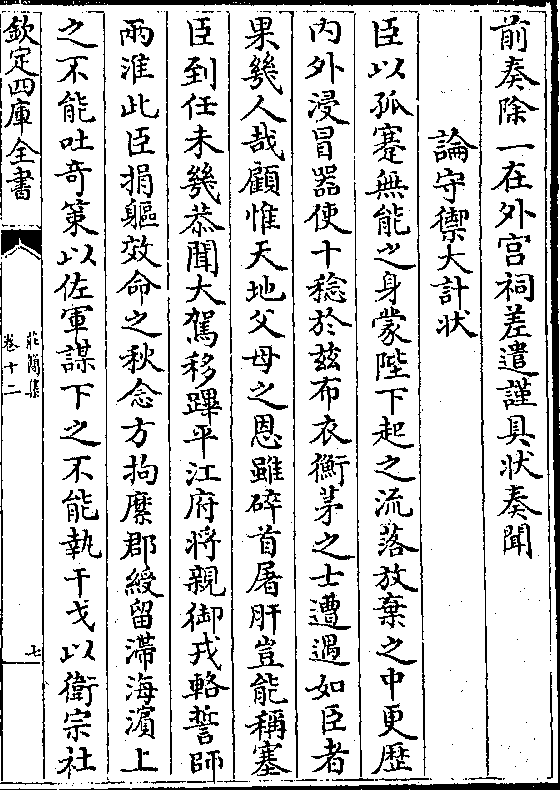 前奏除一在外宫祠差遣謹具状奏聞
論守禦大計状
臣以孤蹇無能之身蒙陛下起之流落放棄之中更歴
内外浸冒器使十稔於兹布衣衡茅之士遭遇如臣者
果幾人哉顧惟天地父母之恩雖碎首屠肝豈能稱塞
臣到任未幾恭聞大駕移蹕平江府将親御戎輅誓師
兩淮此臣捐軀效命之秋念方拘縻郡綬留滯海濵上
之不能吐奇策以佐軍謀下之不能執干戈以衛宗社
欽定四庫全書
莊簡集
卷十二
七